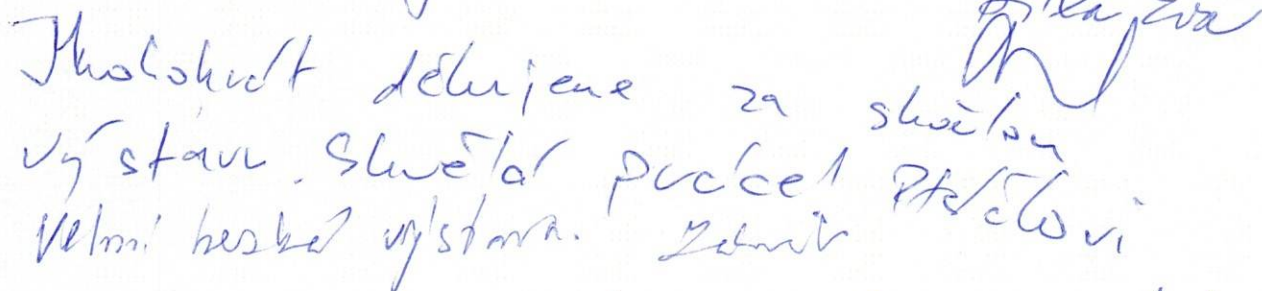 Eva
Mnohokrát děkujeme za skvělou
výstavu. Skvělá práce! Ptáčkovi
Velmi hezká výstava.